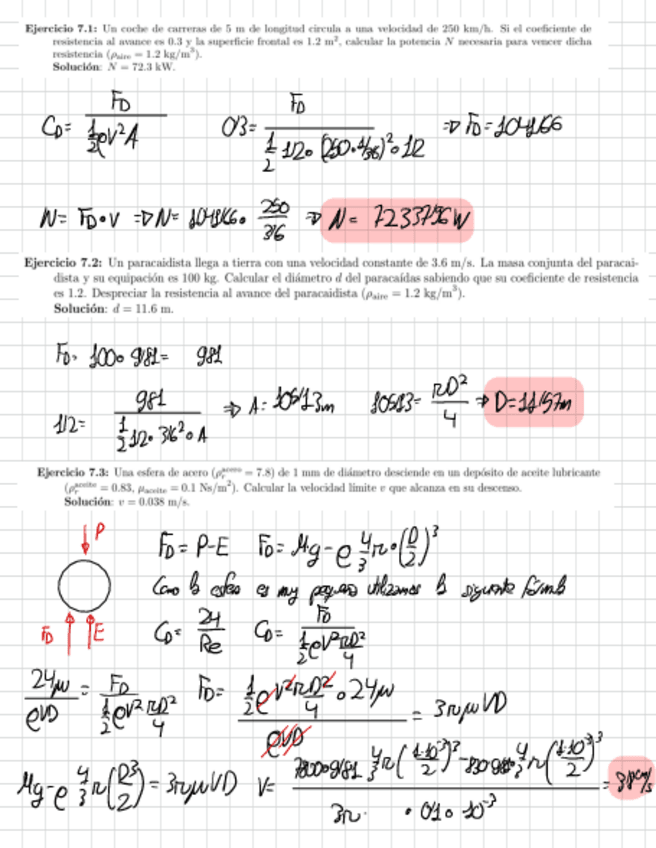 Ejercicio 7.1: Un coche de carreras de 5 m de longitud circula a una velocidad de 250 km/h. Si el coeficiente de
resistencia al avance es 0.3 y la superficie frontal es 1.2 m², calcular la potencia N necesaria para vencer dicha
resistencia (ρaire = 1.2 kg/m³).
Solución: N = 72.3 kW.
C_D = F_D / (½ρV²A)   0'3 = F_D / (½ 1'2 · (250 · 1/3'6)² · 1'2) ⇒ F_D = 1041'66
N = F_D · V ⇒ N = 1041'66 · 250/3'6 ⇒ N = 72337'96 W
Ejercicio 7.2: Un paracaidista llega a tierra con una velocidad constante de 3.6 m/s. La masa conjunta del paracai-
dista y su equipación es 100 kg. Calcular el diámetro d del paracaídas sabiendo que su coeficiente de resistencia
es 1.2. Despreciar la resistencia al avance del paracaidista (ρaire = 1.2 kg/m³).
Solución: d = 11.6 m.
F_D = 100 · 9'81 = 981
1'2 = 981 / (½ 1'2 · 3'6² · A) ⇒ A = 105'13m   105'13 = πD²/4 ⇒ D = 11'57m
Ejercicio 7.3: Una esfera de acero (ρr^acero = 7.8) de 1 mm de diámetro desciende en un depósito de aceite lubricante
(ρr^aceite = 0.83, μaceite = 0.1 Ns/m²). Calcular la velocidad límite v que alcanza en su descenso.
Solución: v = 0.038 m/s.
P
F_D = P-E   F_D = Mg - ρ 4/3 π · (D/2)³
Como la esfera es muy pequeña utilizamos la siguiente fórmula
F_D   E   C_D = 24/Re   C_D = F_D / (½ρV² πD²/4)
24μ/ρVD = F_D / (½ρV² πD²/4)   F_D = (½ρV² πD²/4 · 24μ) / ρVD = 3πμVD
Mg - ρ 4/3 π (D/2)³ = 3πμVD   V = (7800 · 9'81 4/3 π (1·10⁻³/2)³ - 830 · 9'81 4/3 π (1·10⁻³/2)³) / (3π · 0'1 · 10⁻³) =